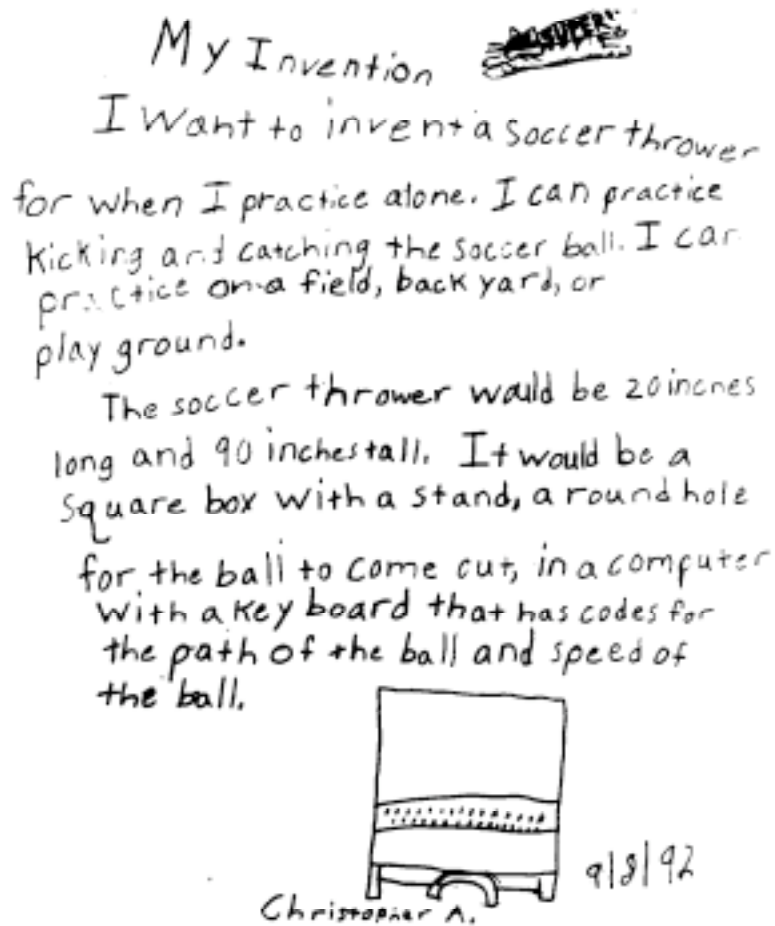 My Invention
SUPER
I want to invent a soccer thrower
for when I practice alone. I can practice
kicking and catching the soccer ball. I can
practice on a field, back yard, or
play ground.
The soccer thrower would be 20 inches
long and 90 inches tall. It would be a
square box with a stand, a round hole
for the ball to come out, in a computer
with a key board that has codes for
the path of the ball and speed of
the ball.
9/8/92
Christopher A.